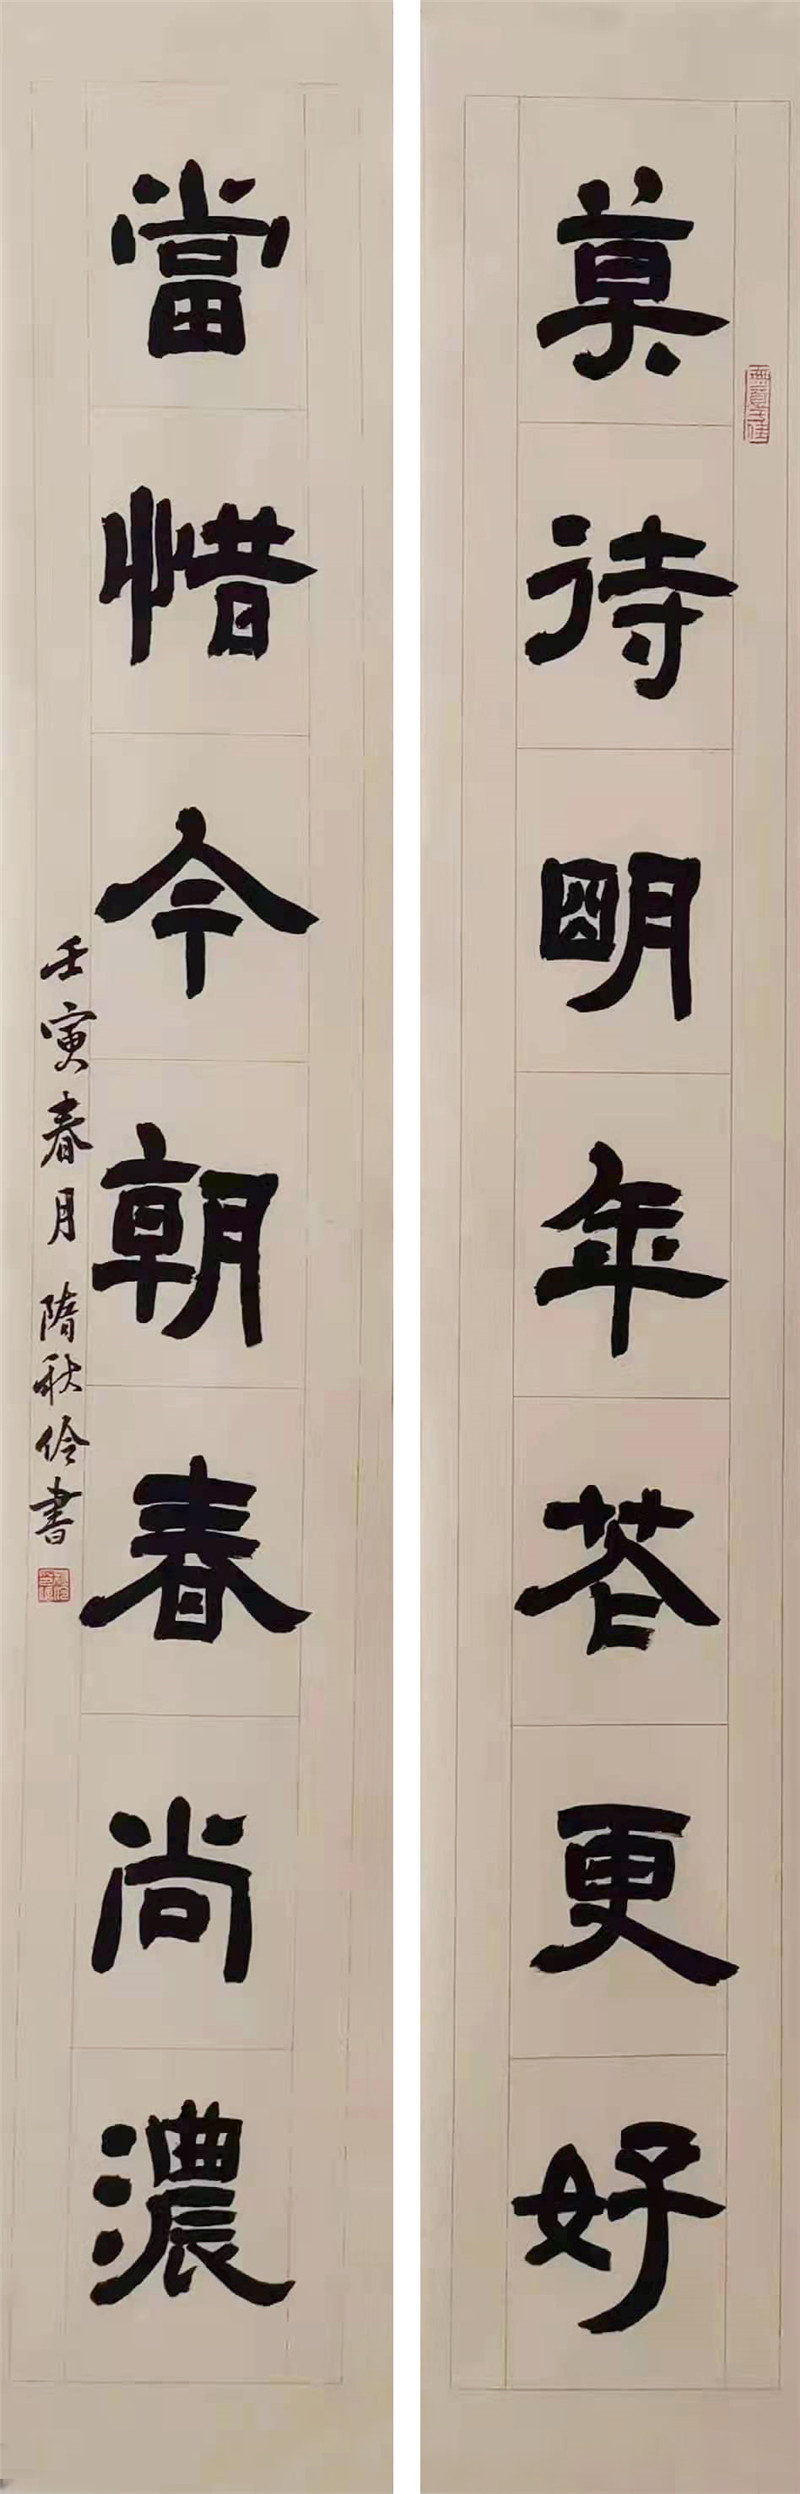 莫待明年花更好
當惜今朝春尚濃
壬寅春月 隋秋伶書